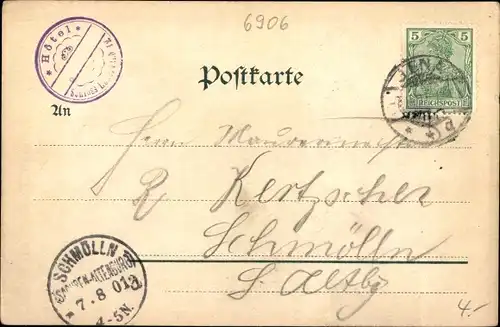 6906
* Hôtel *
5
REICHSPOST
JENA
Postkarte
An
Herrn Maurermeister
R Kertzscher
Schmölln
S. Altbg
SCHMÖLLN
SACHSEN-ALTENBURG
7. 8 01
4-5N.
4.-